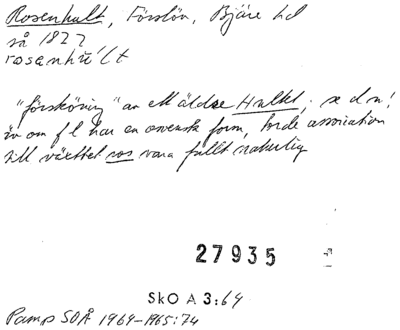 Rosenhult, Förslöv, Bjäre hd
så 1822
rosenhúlt
"försköning" av ett äldre Hultet; se d n!
även om f l har en svensk form, torde association
till växten ros vara fullt naturlig
27935
SkO A 3:64
Pamp SOÅ 1964-1965:74